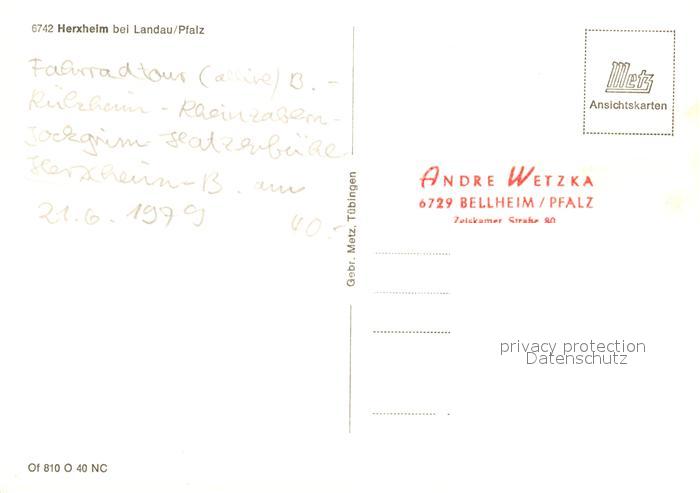 6742 Herxheim bei Landau/Pfalz
Fahrradtour (allein) B. -
Rülzheim - Rheinzabern -
Jockgrim Hatzenbühl
Herxheim - B. am
21.6.1979
40.-
Gebr. Metz, Tübingen
Metz
Ansichtskarten
ANDRE WETZKA
6729 BELLHEIM / PFALZ
Zeiskamer Straße 80
privacy protection
Datenschutz
Of 810 O 40 NC